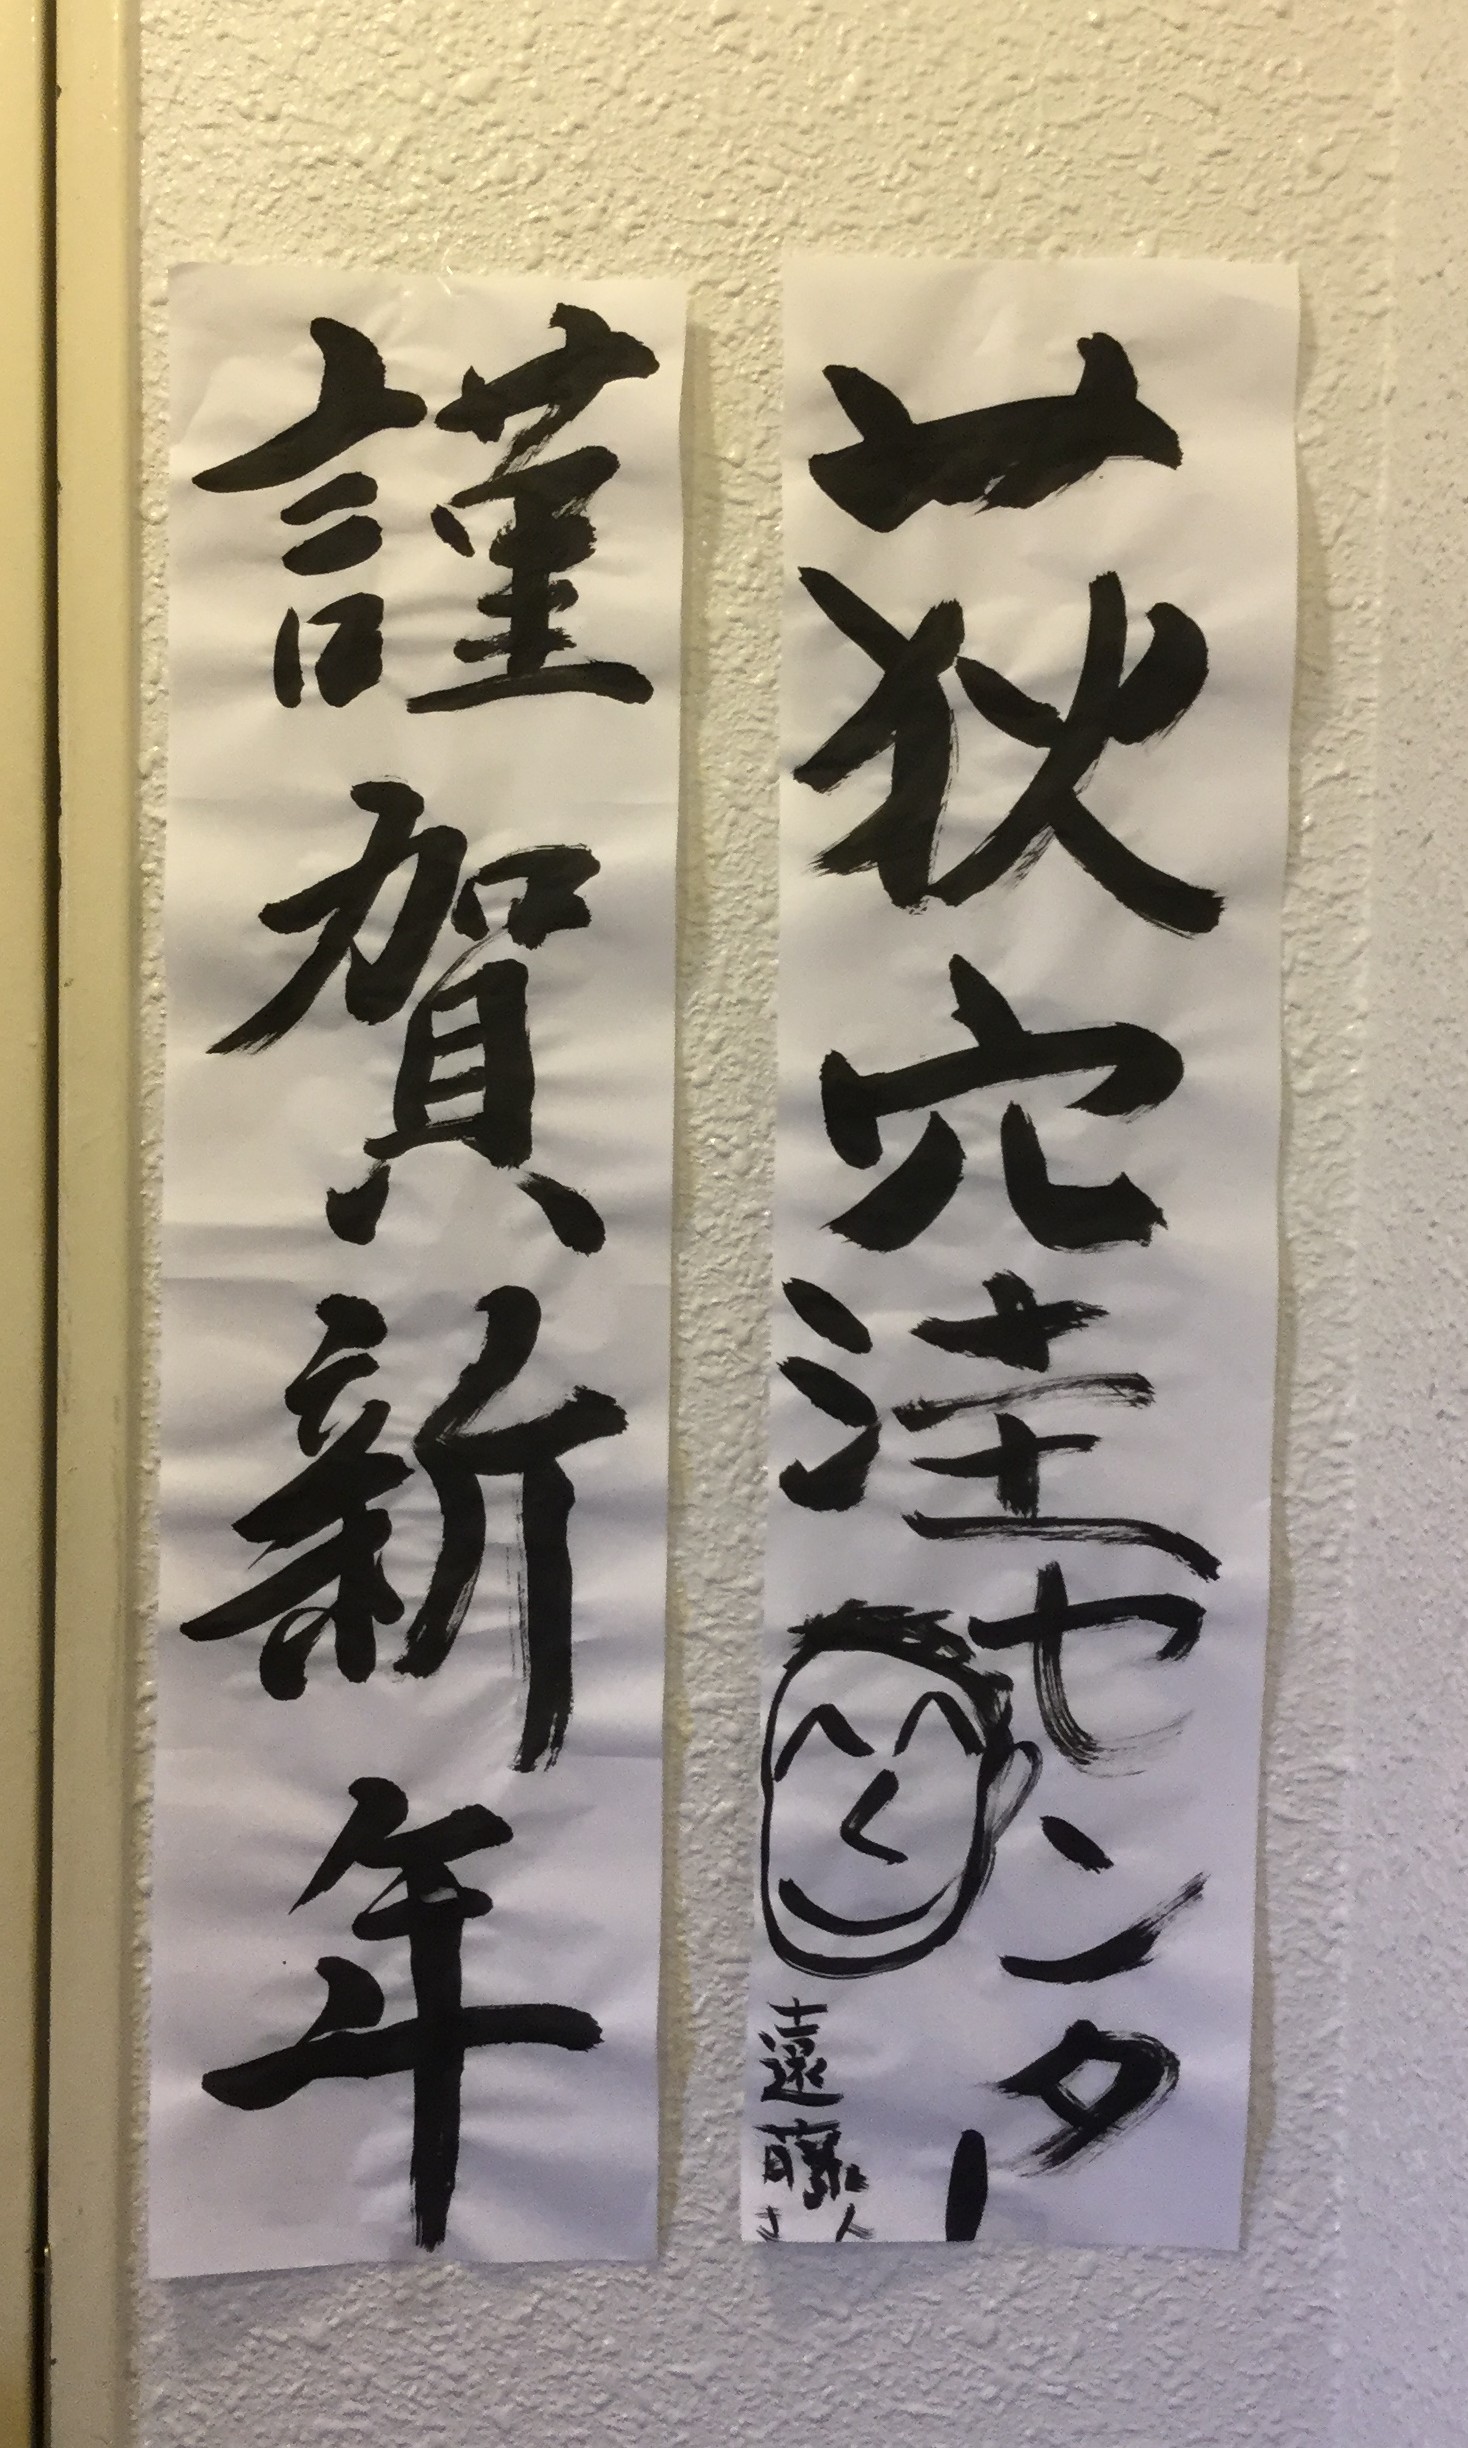 荻穴洼センター
遠藤さん
謹賀新年